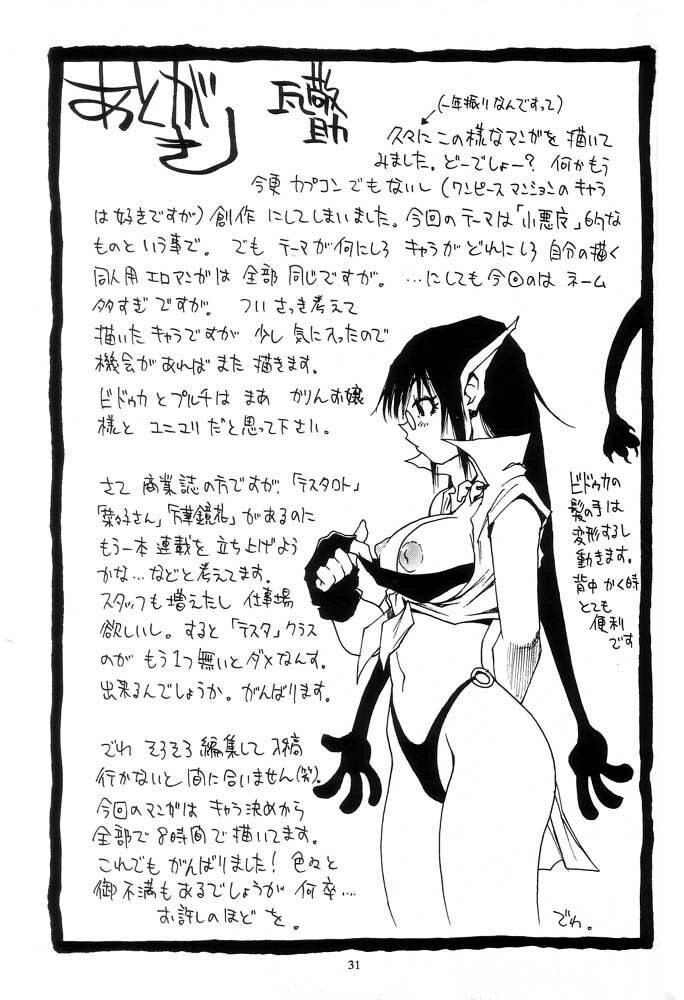 あとがき
瓦敬助
(一年振りなんですって)
久々に この様なマンガを 描いて
みました。どーでしょー? 何かもう
今更 カプコン でもないし (ワンピース マンションの キャラ
は好きですが) 創作 にしてしまいました。今回のテーマは「小悪魔」的な
ものという事で。でも テーマが何にしろ キャラが どれにしろ 自分の描く
同人用 エロマンガは 全部 同じですが。…にしても今回のは ネーム
多すぎ ですが。つい さっき考えて
描いた キャラですが 少し 気に入ったので
機会があれば また 描きます。
ビドゥカ と プルチ は まあ かりんお嬢
様と ユニユリ だと思って下さい。
さて 商業誌の方ですが、「テスタロト」
「菜々子さん」「万華鏡花」があるのに
もう一本 連載を 立ち上げよう
かな…などと考えてます。
スタッフも 増えたし 仕事場
欲しいし。すると「テスタ」クラス
のが もう1つ 無いと ダメなんす。
出来るんでしょうか。がんばります。
でわ そろそろ 編集して 入稿
行かないと 間に合いません(笑)。
今回のマンガは キャラ決めから
全部で 8時間で 描いてます。
これでも がんばりました! 色々と
御不満もあるでしょうが 何卒…
お許しのほど を。
ビドゥカの
髪の手は
変形するし
動きます。
背中かく時
とても
便利
です
でわ。
31